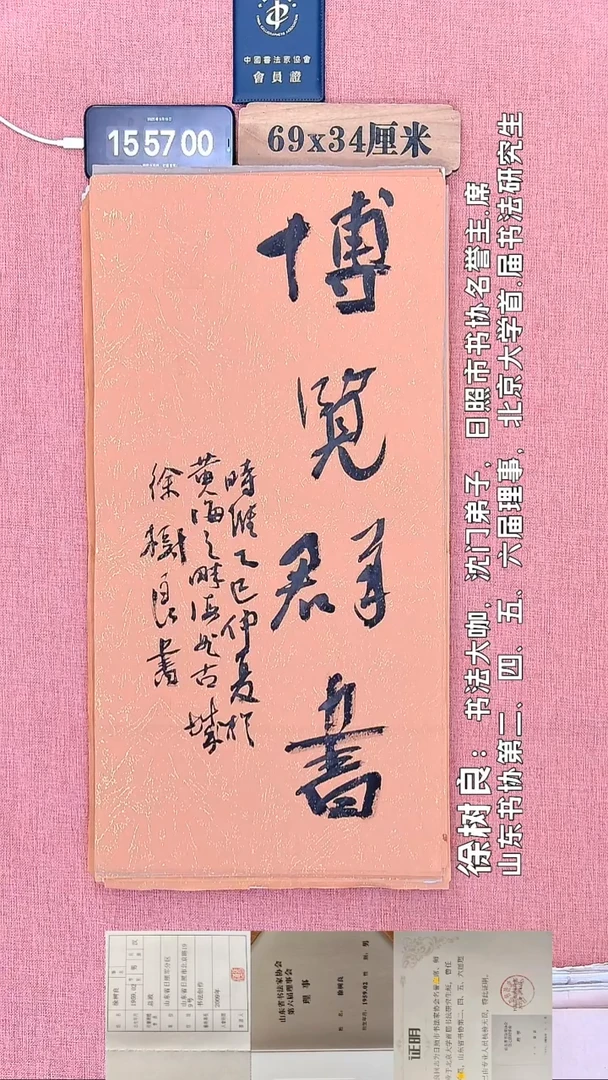 中國書法家協會
會員證
15 57 00
69x34厘米
博覽群書
時維乙巳仲夏於
黄海之畔海曲古城
徐樹良書
徐树良：书法大咖，沈门弟子，日照市书协名誉主.席
山东书协第二、四、五、六届理事，北京大学首.届书法研究生
山东省书法家协会
第六届理事会
理事
证明